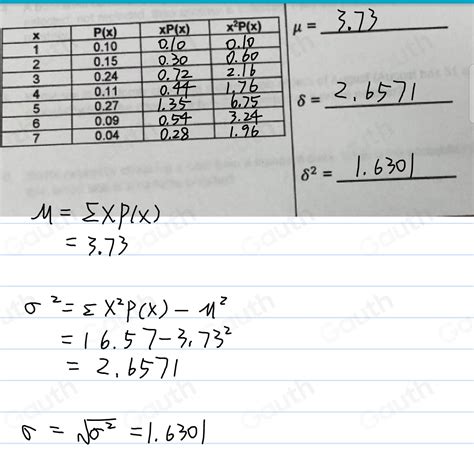 x P(x) xP(x) x²P(x)
1 0.10 0.10 0.10
2 0.15 0.30 0.60
3 0.24 0.72 2.16
4 0.11 0.44 1.76
5 0.27 1.35 6.75
6 0.09 0.54 3.24
7 0.04 0.28 1.96
μ = 3.73
δ = 2.6571
δ² = 1.6301
M = ΣXP(X)
= 3.73
σ² = Σ X²P(X) - M²
= 16.57-3.73²
= 2.6571
σ = √σ² = 1.6301
Gauth
Gauth
Gauth
Gauth
Gauth
Gauth